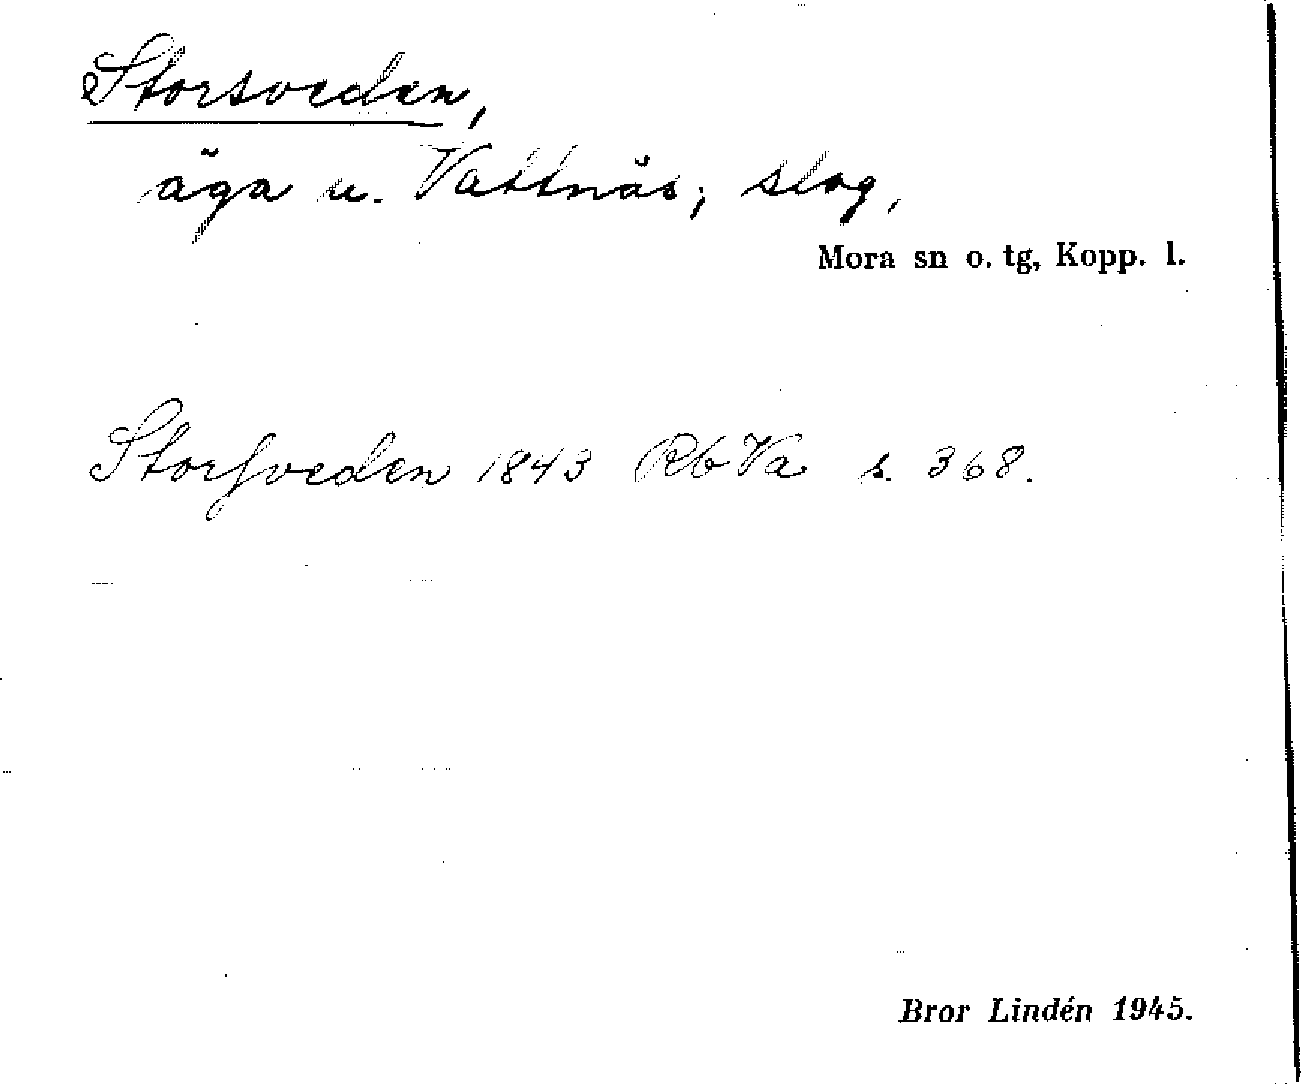 Storsveden,
äga u. Vattnäs; slog,
Mora sn o. tg, Kopp. l.
Storſveden 1843 RbVa s. 368.
Bror Lindén 1945.